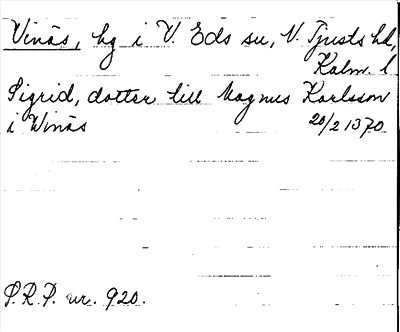 Vinäs, hg i V. Eds su, N. Tjusts hd,
Kalm. l
Sigrid, dotter till Magnus Karlsson
i Winäs 20/2 1370.
S.R.P. nr. 920.